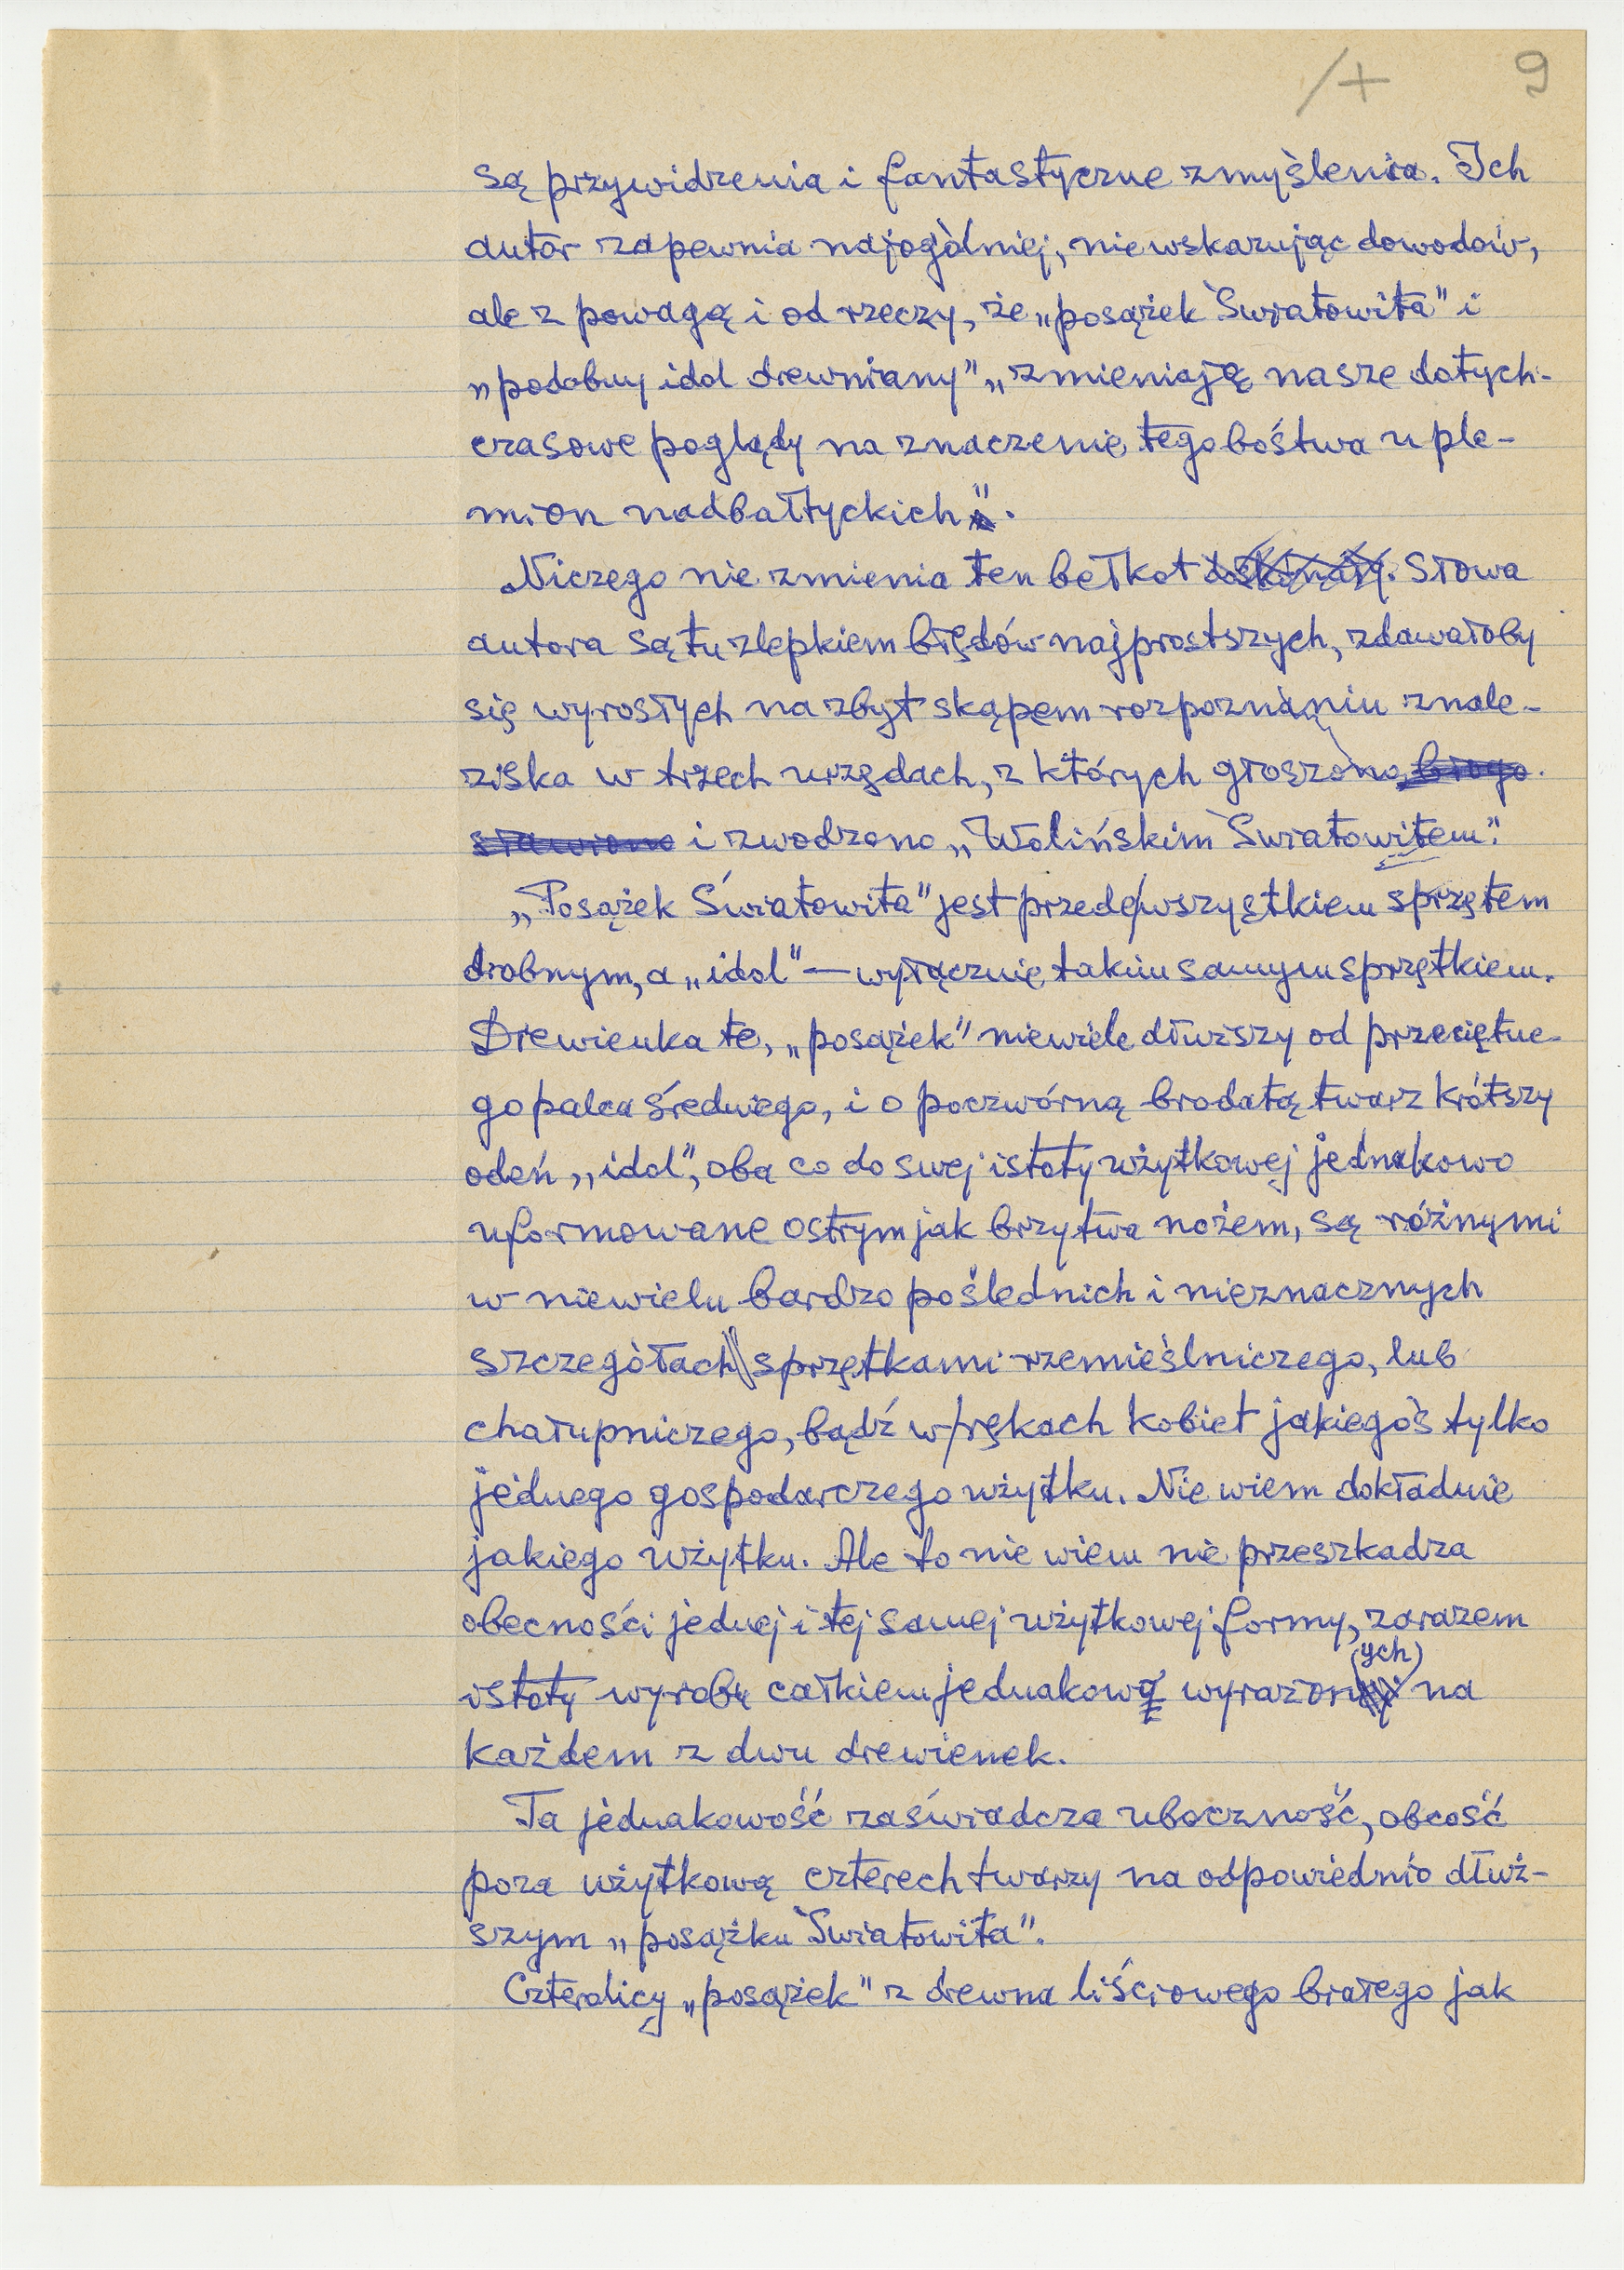 /+ 9
są przywidzenia i fantastyczne zmyślenia. Ich
autor zapewnia najogólniej, nie wskazując dowodów,
ale z powagą i od rzeczy, że „posążek Światowita" i
„podobny idol drewniany" „zmieniają nasze dotych-
czasowe poglądy na znaczenie tego bóstwa u ple-
mion nadbałtyckich".
Niczego nie zmienia ten bełkot doskonały. Słowa
autora są tu zlepkiem błędów najprostszych, zdawałoby
się wyrosłych na zbyt skąpem rozpoznaniu znale-
ziska w trzech urzędach, z których głoszono, błogo
sławiono i zwodzono „Wolińskim Światowitem".
„Posążek Światowita" jest przede wszystkiem sprzętem
drobnym, a „idol" — wyłącznie takim samym sprzętkiem.
Drewienka te, „posążek" niewiele dłuższy od przeciętne-
go palca średniego, i o poczwórną brodatą twarz krótszy
odeń „idol", oba co do swej istoty użytkowej jednakowo
uformowane ostrym jak brzytwa nożem, są różnymi
w niewielu bardzo poślednich i nieznacznych
szczegółach sprzętkami rzemieślniczego, lub
chałupniczego, bądź w rękach kobiet jakiegoś tylko
jednego gospodarczego użytku. Nie wiem dokładnie
jakiego użytku. Ale to nie wiem nie przeszkadza
obecności jednej i tej samej użytkowej formy, zarazem
istoty wyrobu całkiem jednakowo wyrażon(ych) na
każdem z dwu drewienek.
Ta jednakowość zaświadcza uboczność, obcość
poza użytkową czterech twarzy na odpowiednio dłuż-
szym „posążku Światowita".
Czterolicy „posążek" z drewna liściowego białego jak